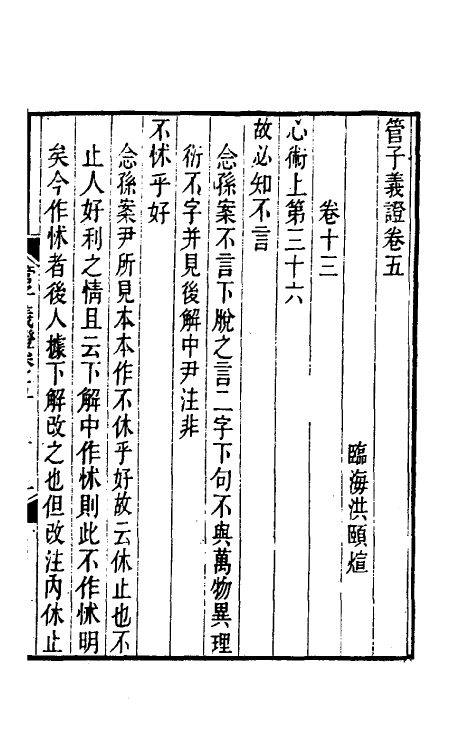 管子義證卷五
臨海洪頤煊
卷十三
心術上第三十六
故必知不言
念孫案不言下脫之言二字下句不與萬物異理
衍不字并見後解中尹注非
不怵乎好
念孫案尹所見本本作不休乎好故云休止也不
止人好利之情且云下解中作怵則此不作怵明
矣今作怵者後人據下解改之也但改注內休止